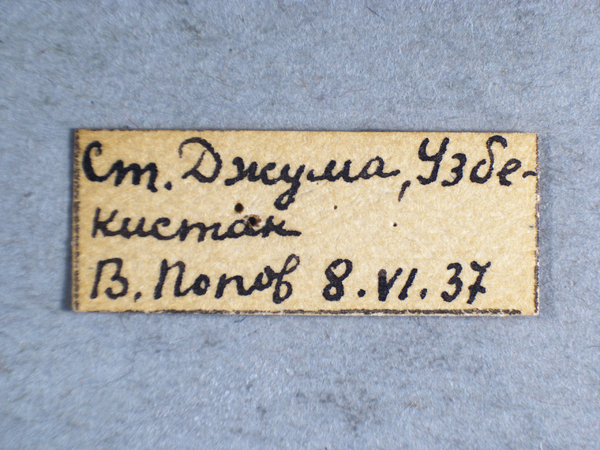 Ст. Джума, Узбе-
кистан
В. Попов 8.VI.37